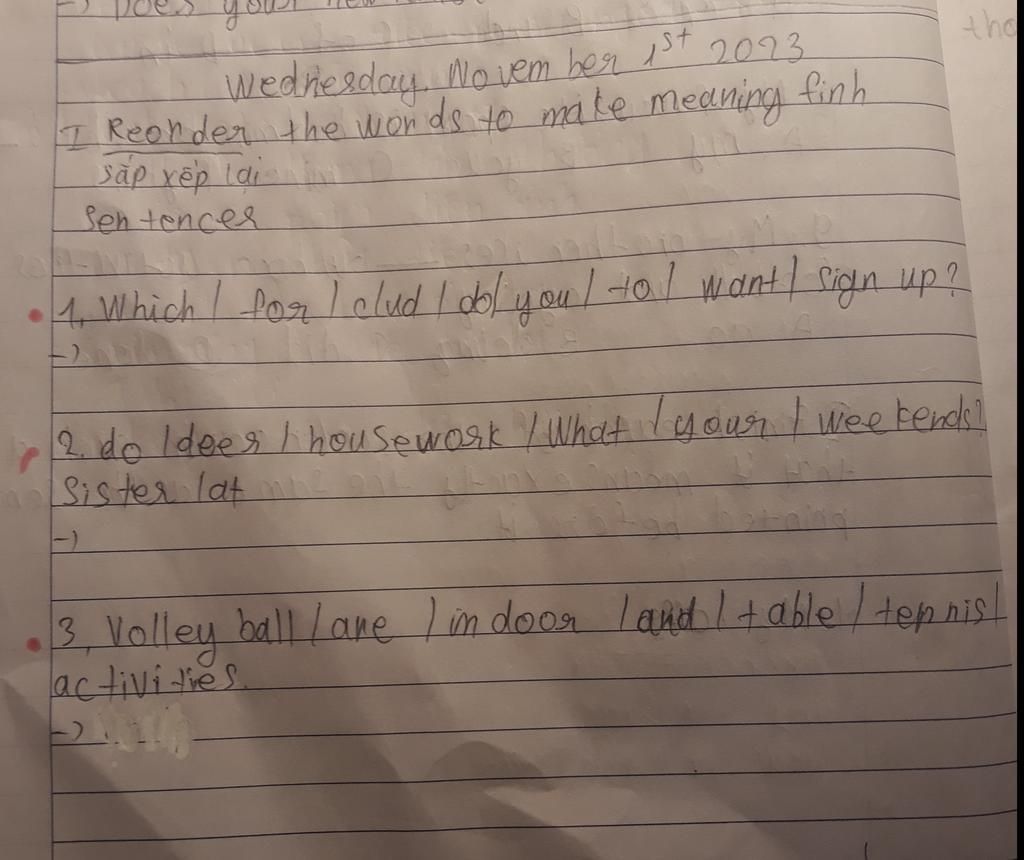 -) Does your new
Wednesday, November 1st 2023
I Reorder the words to make meaning finh
sắp xếp lại
sentences
1, Which / for / clud / do / you / to / want / sign up?
-)
2. do / does / housework / What / your / weekends?
sister / at
-)
3, Volley ball / are / indoor / and / table / tennis /
activities.
-)